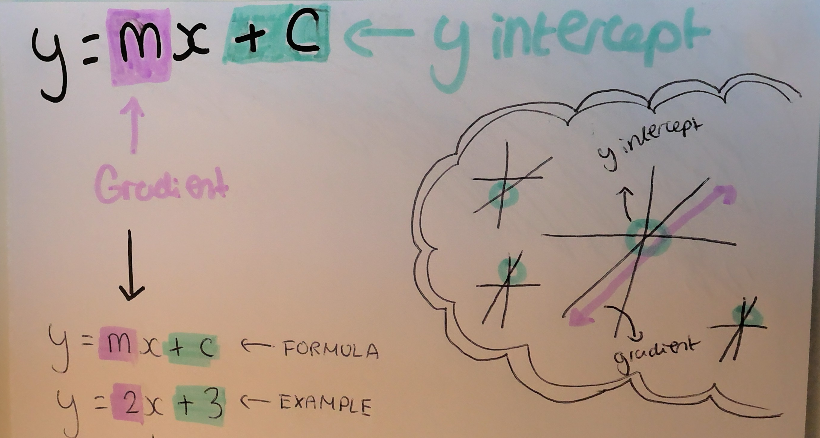 y = mx + c ← y intercept
Gradient
y = mx + c ← FORMULA
y = 2x + 3 ← EXAMPLE
y intercept
gradient